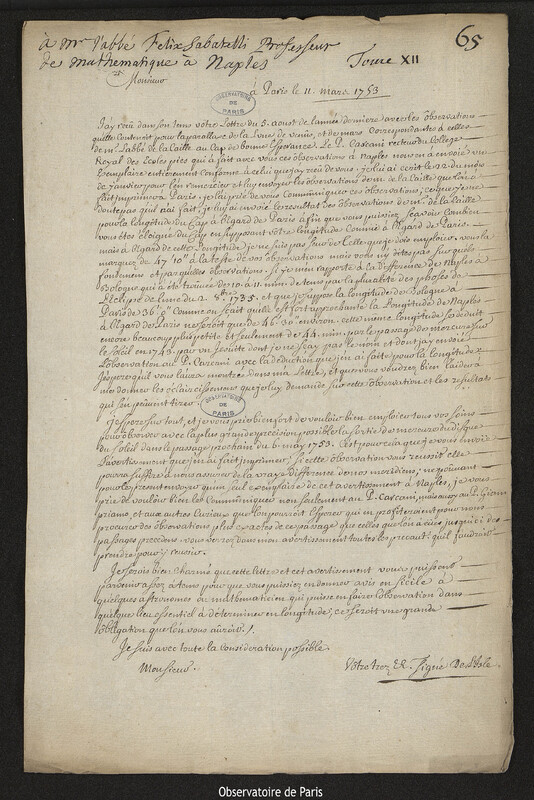 65
à Mr. l'abbé Felix Sabatelli Professeur
de mathematique à Naples Tome XII
Monsieur
à Paris le 11. mars 1753
OBSERVATOIRE DE PARIS
J'ay reçû dans son tems votre Lettre du 5. aoust de l'année derniere avec les observations
qu'elle contenoit pour la parallaxe de la Lune de Venus, et de mars correspondantes à celles
de mr. L'abbé de la Caille au Cap de bonne Esperance. Le P. Carcani recteur du College
Royal des Ecoles pies qui a fait avec vous ces observations à Naples m'en a envoié un
Exemplaire entierement conforme à celui que j'ay reçu de vous; je lui ai écrit le 12 du mois
de janvier pour l'en remercier et luy envoyer les observations de mr. de la Caille que l'on a
fait imprimer à Paris; je l'ai prié de vous Communiquer ces observations; ce que je ne
doute pas qu'il n'ai fait; je lui ai envoié le resultat des observations de mr. de la Caille
pour la longitude du Cap à l'égard de Paris à fin que vous puissiez sçavoir combien
vous êtes éloigné du Cap en supposant votre longitude Connüe à l'égard de Paris.
mais à l'égard de cette Longitude je ne suis pas seur de Celle que je dois emploier, vous la
marquez de 47' 10" à la teste de vos observations mais vous n'y dites pas sur quels
fondement et par quelles observations. Si je m'en rapporte à la difference de Naples à
Bologne qui a été trouvée de 10 à 11. min. de tems par la pluralité des phases de
l'Eclipse de Lune du 2 8bre 1735. et que je suppose la longitude de Bologne à
Paris de 36' 0" Comme on sçait qu'elle est fort approchante la Longitude de Naples
à l'égard de Paris ne seroit que de 46' 30" environ. cette meme longitude se deduit
encore beaucoup plus petite et seulement de 44. min. par le passage de mercure sur
le Soleil en 1743. par un jesuite dont je ne sçay pas le nom et dont j'ay envoié
l'observation au P. Carcani avec la deduction que j'en ai faite pour la longitude
J'espere qu'il vous l'aura montrée dans ma Lettre, et que vous voudrez bien l'aider à
me donner les éclaircissemens que je lui demande sur cette observation et les resultats
qui s'en peuvent tirer.
OBSERVATOIRE DE PARIS
J'espere sur tout, et je vous prie bien fort de vouloir bien emploier tous vos soins
pour observer avec la plus grande precision possible la sortie de mercure du disque
du Soleil dans le passage prochain du 6 may 1753. C'est pour cela que je vous envoie
l'avertissement que j'en ai fait imprimer; si cette observation vous reussit elle
pourra suffire à nous assurer de la vraye difference de nos meridiens; ne pouvant
pour le present envoyer qu'un seul exemplaire de cet avertissement à Naples, je vous
prie de vouloir bien le Communiquer non seulement au P. Carcani, mais aussi au P. Gianni
priams, et aux autres Curieux que l'on pourroit esperer qui en profiteroient pour nous
procurer des observations plus exactes de ce passage que celles que l'on a eües jusqu'ici des
passages precedens. vous verrez dans mon avertissement toutes les precautions qu'il faudroit
prendre pour y reussir.
Je serois bien charmé que cette lettre et cet avertissement vous puissent
parvenir assez à tems pour que vous puissiez en donner avis en Sicile à
quelques astronomes ou mathematicien qui puisse en faire l'observation dans
quelque lieu essentiel à determiner en longitude; ce seroit une grande
obligation que l'on vous auroit.
Je suis avec toute la consideration possible
Monsieur. Votre trez &c. Signé De L'Isle
Observatoire de Paris